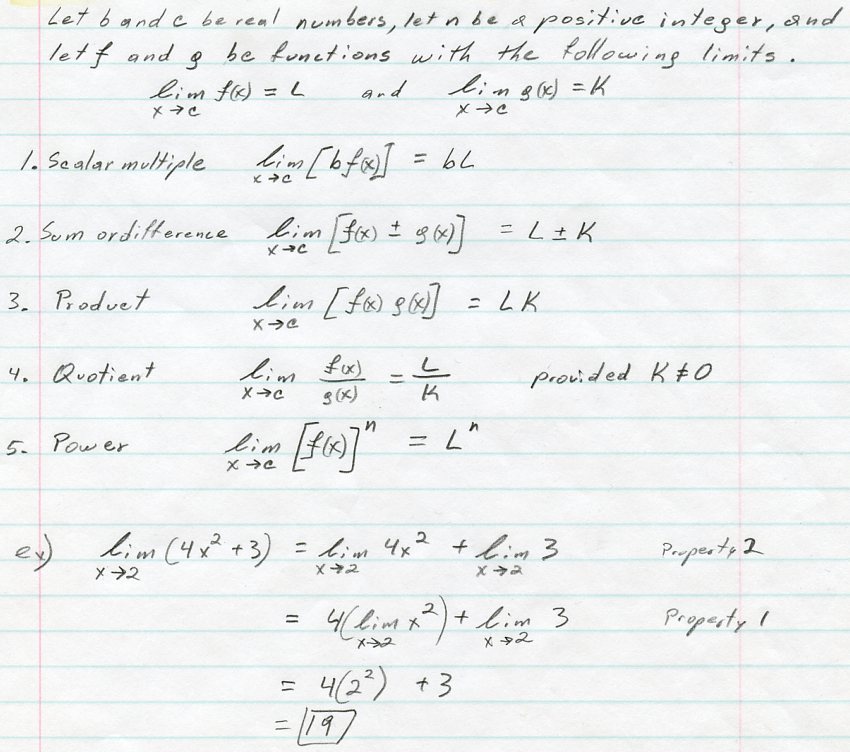 Let b and c be real numbers, let n be a positive integer, and
let f and g be functions with the following limits.
lim f(x) = L and lim g(x) = K
x→c x→c
1. Scalar multiple lim [b f(x)] = bL
x→c
2. Sum or difference lim [f(x) ± g(x)] = L ± K
x→c
3. Product lim [f(x) g(x)] = LK
x→c
4. Quotient lim f(x)/g(x) = L/K provided K ≠ 0
x→c
5. Power lim [f(x)]ⁿ = Lⁿ
x→c
ex) lim (4x² + 3) = lim 4x² + lim 3 Property 2
x→2 x→2 x→2
= 4(lim x²) + lim 3 Property 1
x→2 x→2
= 4(2²) + 3
= 19